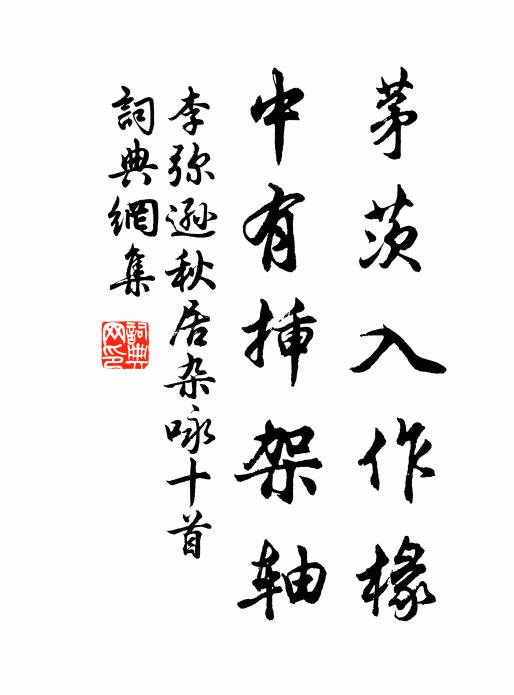 茅茨入作椽
中有挿架轴
李弥逊秋居杂咏十首
詞典網集
詞典网印